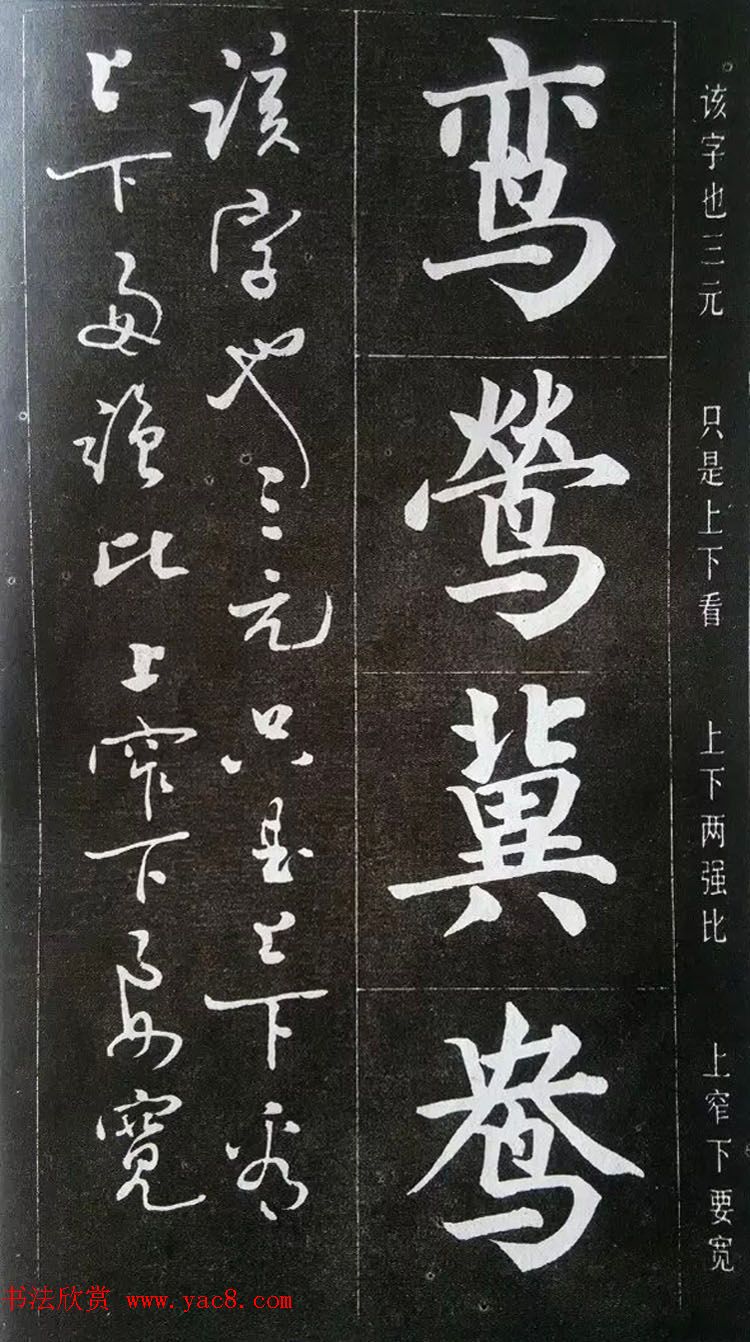 该字也三元 只是上下看 上下两强比 上窄下要宽
鸾
莺
冀
该字也三元只是上下看
上下两强比上窄下要宽
书法欣赏 www.yac8.com